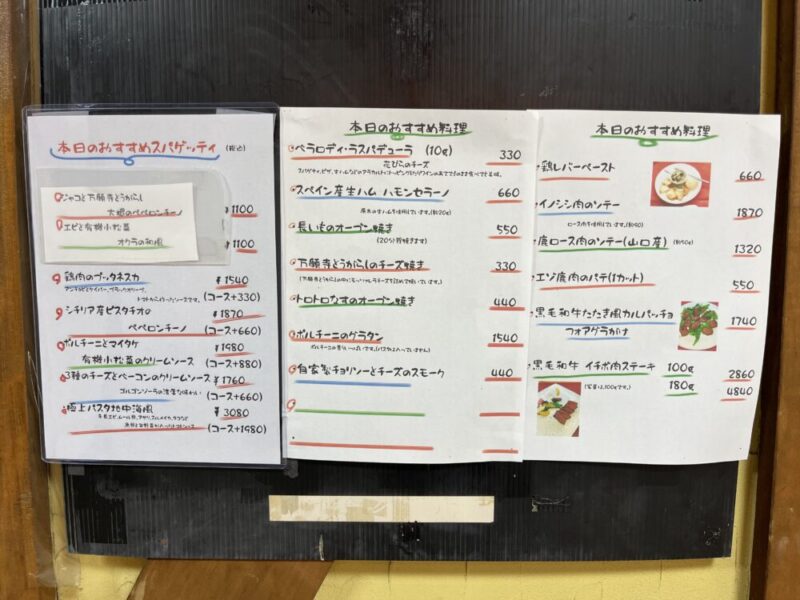 本日のおすすめスパゲッティ (税込)
ジャコと万願寺とうがらし
大根のペペロンチーノ ¥1100
エビと有機小松菜
オクラの和風 ¥1100
鶏肉のプッタネスカ ¥1540
(コース+330)
シチリア産ピスタチオの ¥1870
ペペロンチーノ (コース+660)
ポルチーニとマイタケ ¥1980
有機小松菜のクリームソース (コース+880)
3種のチーズとベーコンのクリームソース ¥1760
ゴルゴンゾーラの濃厚な味わい (コース+660)
極上パスタ地中海風 ¥3080
(コース+1980)
本日のおすすめ料理
ベラロディ・ラスパデューラ (10g) 330
花びらのチーズ
スペイン産生ハム ハモンセラーノ 660
長いものオーブン焼き 550
(20分程焼きます)
万願寺とうがらしのチーズ焼き 330
トロトロなすのオーブン焼き 440
ポルチーニのグラタン 1540
自家製チョリソーとチーズのスモーク 440
本日のおすすめ料理
鶏レバーペースト 660
イノシシ肉のソテー 1870
鹿ロース肉のソテー(山口産) (約90g) 1320
エゾ鹿肉のパテ(1カット) 550
黒毛和牛たたき風カルパッチョ 1740
フォアグラがけ
黒毛和牛 イチボ肉ステーキ 100g 2860
(写真は100gです。) 180g 4840